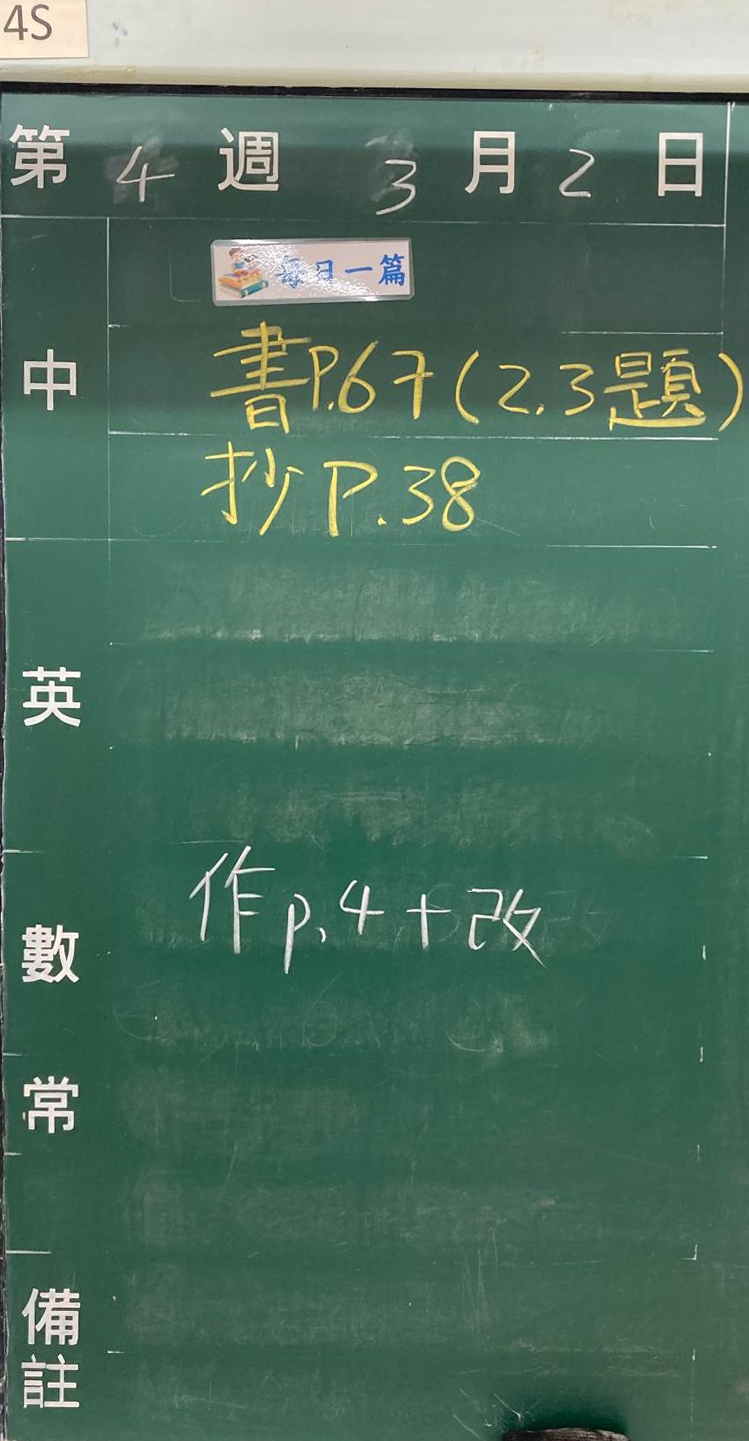 4S
第 4 週 3 月 2 日
每日一篇
中
書P.67(2.3題)
抄P.38
英
數
作p.4+改
常
備註